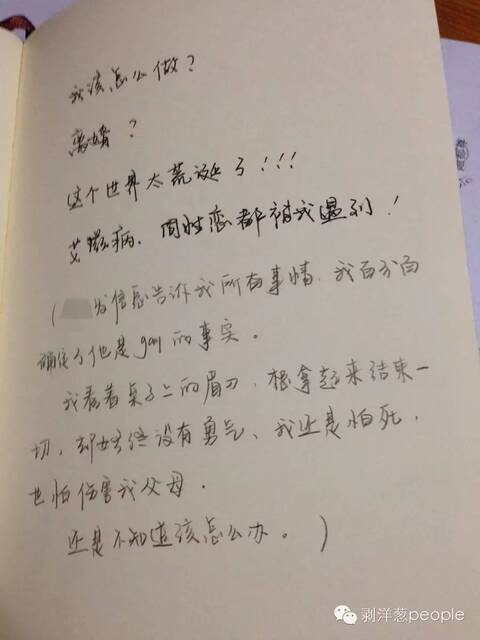 我该怎么做？
离婚？
这个世界太荒诞了！！！
艾滋病、同性恋都被我遇到！
（ 发信息告诉我所有事情，我百分百
确信了他是gay的事实。
我看着桌子上的眉刀，想拿起来结束一
切，却始终没有勇气、我还是怕死，
也怕伤害我父母．
还是不知道该怎么办。）
剥洋葱people